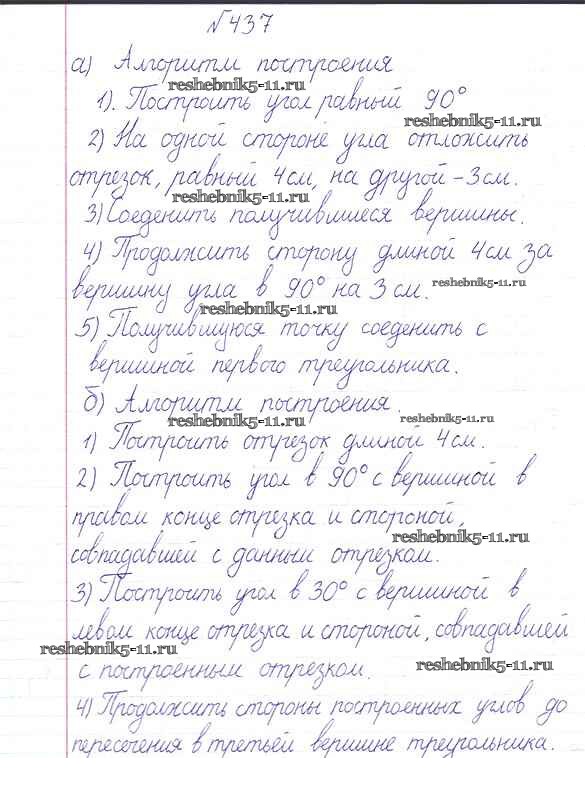 №437
а) Алгоритм построения
reshebnik5-11.ru
1). Построить угол равный 90°
reshebnik5-11.ru
2) На одной стороне угла отложить
отрезок, равный 4 см, на другой – 3 см.
reshebnik5-11.ru
3) Соеденить получившиеся вершины.
4) Продолжить сторону длиной 4 см за
reshebnik5-11.ru
вершину угла в 90° на 3 см.
reshebnik5-11.ru
5) Получившуюся точку соеденить с
вершиной первого треугольника.
б) Алгоритм построения.
reshebnik5-11.ru reshebnik5-11.ru
1) Построить отрезок длиной 4 см.
2) Построить угол в 90° с вершиной в
правом конце отрезка и стороной,
reshebnik5-11.ru
совпадавшей с данным отрезком.
3) Построить угол в 30° с вершиной в
левом конце отрезка и стороной, совпадавшей
reshebnik5-11.ru
с построенным отрезком.
reshebnik5-11.ru
4) Продолжить стороны построенных углов до
пересечения в третьей вершине треугольника.